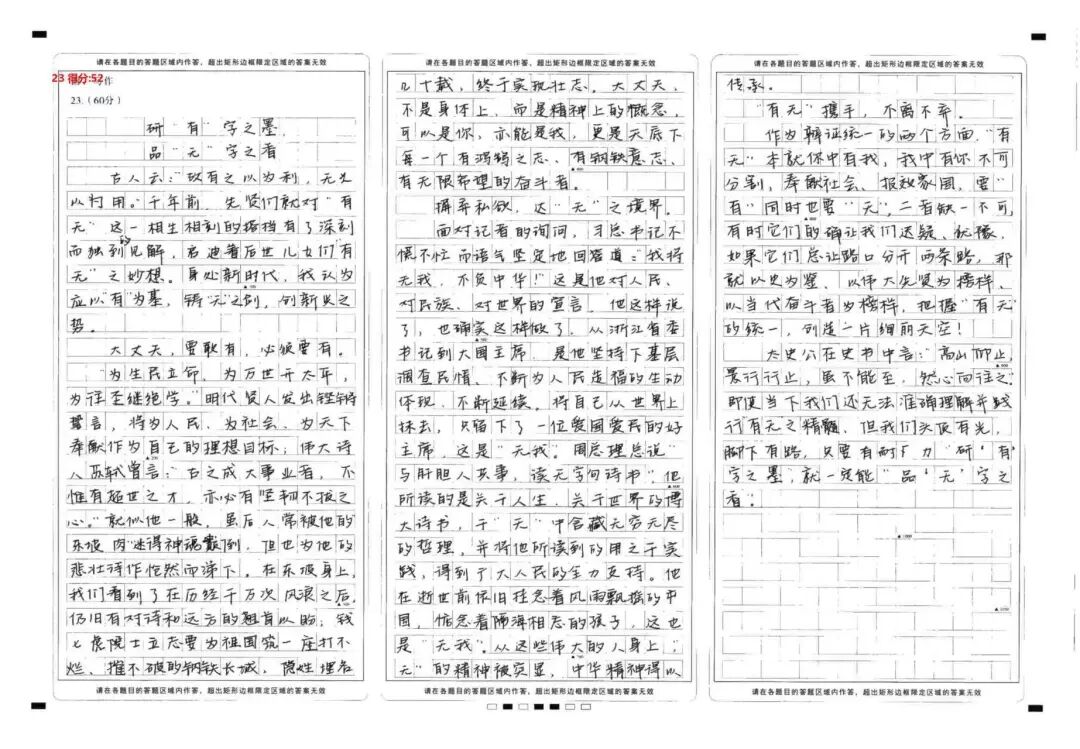 请在各题目的答题区域内作答，超出矩形边框限定区域的答案无效
23 得分:52
写作
23.（60分）
研“有”字之墨，
品“无”字之香
古人云：“故有之以为利，无之
以为用。”千年前，先贤们就对“有
无”这一相生相刻的搭档有了深刻
而独到见解，启迪着后世儿女们“有
无”之妙想。身处新时代，我认为
应以“有”为基，铸“无”之剑，创新史之
势。
大丈夫，要敢有，必须要有。
“为生民立命，为万世开太平，
为往圣继绝学。”明代贤人发出铿锵
誓言，将为人民、为社会、为天下
奉献作为自己的理想目标；伟大诗
人苏轼曾言：“古之成大事业者，不
惟有超世之才，亦必有坚韧不拔之
心。”就似他一般，虽后人常被他的
东坡肉迷得神魂颠倒，但也为他的
悲壮诗作怆然而涕下。在东坡身上，
我们看到了在历经千万次风浪之后，
仍旧有对诗和远方的翘首以盼；钱
七虎院士立志要为祖国筑一座打不
烂、摧不破的钢铁长城，隐姓埋名
请在各题目的答题区域内作答，超出矩形边框限定区域的答案无效
请在各题目的答题区域内作答，超出矩形边框限定区域的答案无效
几十载，终于实现壮志。大丈夫，
不是身体上，而是精神上的概念，
可以是你，亦能是我，更是天底下
每一个有鸿鹄之志、有钢铁意志、
有无限希望的奋斗者。
摒弃私欲，达“无”之境界。
面对记者的询问，习总书记不
慌不忙而语气坚定地回答道：“我将
无我，不负中华！”这是他对人民、
对民族、对世界的宣言。他这样说
了，也确实这样做了，从浙江省委
书记到大国主席，是他坚持下基层
调查民情、不断为人民造福的生动
体现，不断延续。将自己从世界上
抹去，只留下了一位爱国爱民的好
主席，这是“无我”。周总理总说
“与肝胆人共事，读无字句诗书”，他
所读的是关于人生、关于世界的博
大诗书，于“无”中含藏无穷无尽
的哲理，并将他所读到的用之于实
践，得到了大人民的全力支持。他
在逝世前依旧挂念着风雨飘摇的中
国，惦念着隔海相思的孩子，这也
是“无我”。从这些伟大的人身上，“
无”的精神被突显，中华精神得以
请在各题目的答题区域内作答，超出矩形边框限定区域的答案无效
请在各题目的答题区域内作答，超出矩形边框限定区域的答案无效
传承。
“有无”携手，不离不弃。
作为辩证统一的两个方面，“有
无”本就你中有我，我中有你不可
分割，奉献社会、报效家国，要“
有”同时也要“无”，二者缺一不可，
有时它们的确让我们迟疑、犹豫，
如果它们总让路口分开两条路，那
就以史为鉴、以伟大先贤为榜样、
以当代奋斗者为榜样，把握“有无”
的统一，创造一片绚丽天空！
太史公在史书中言：“高山仰止，
景行行止，虽不能至，然心向往之”
即使当下我们还无法准确理解并践
行有无之精髓，但我们头顶有光，
脚下有路，只要有耐下力“研‘有’
字之墨”，就一定能“品‘无’字之
香”。
请在各题目的答题区域内作答，超出矩形边框限定区域的答案无效